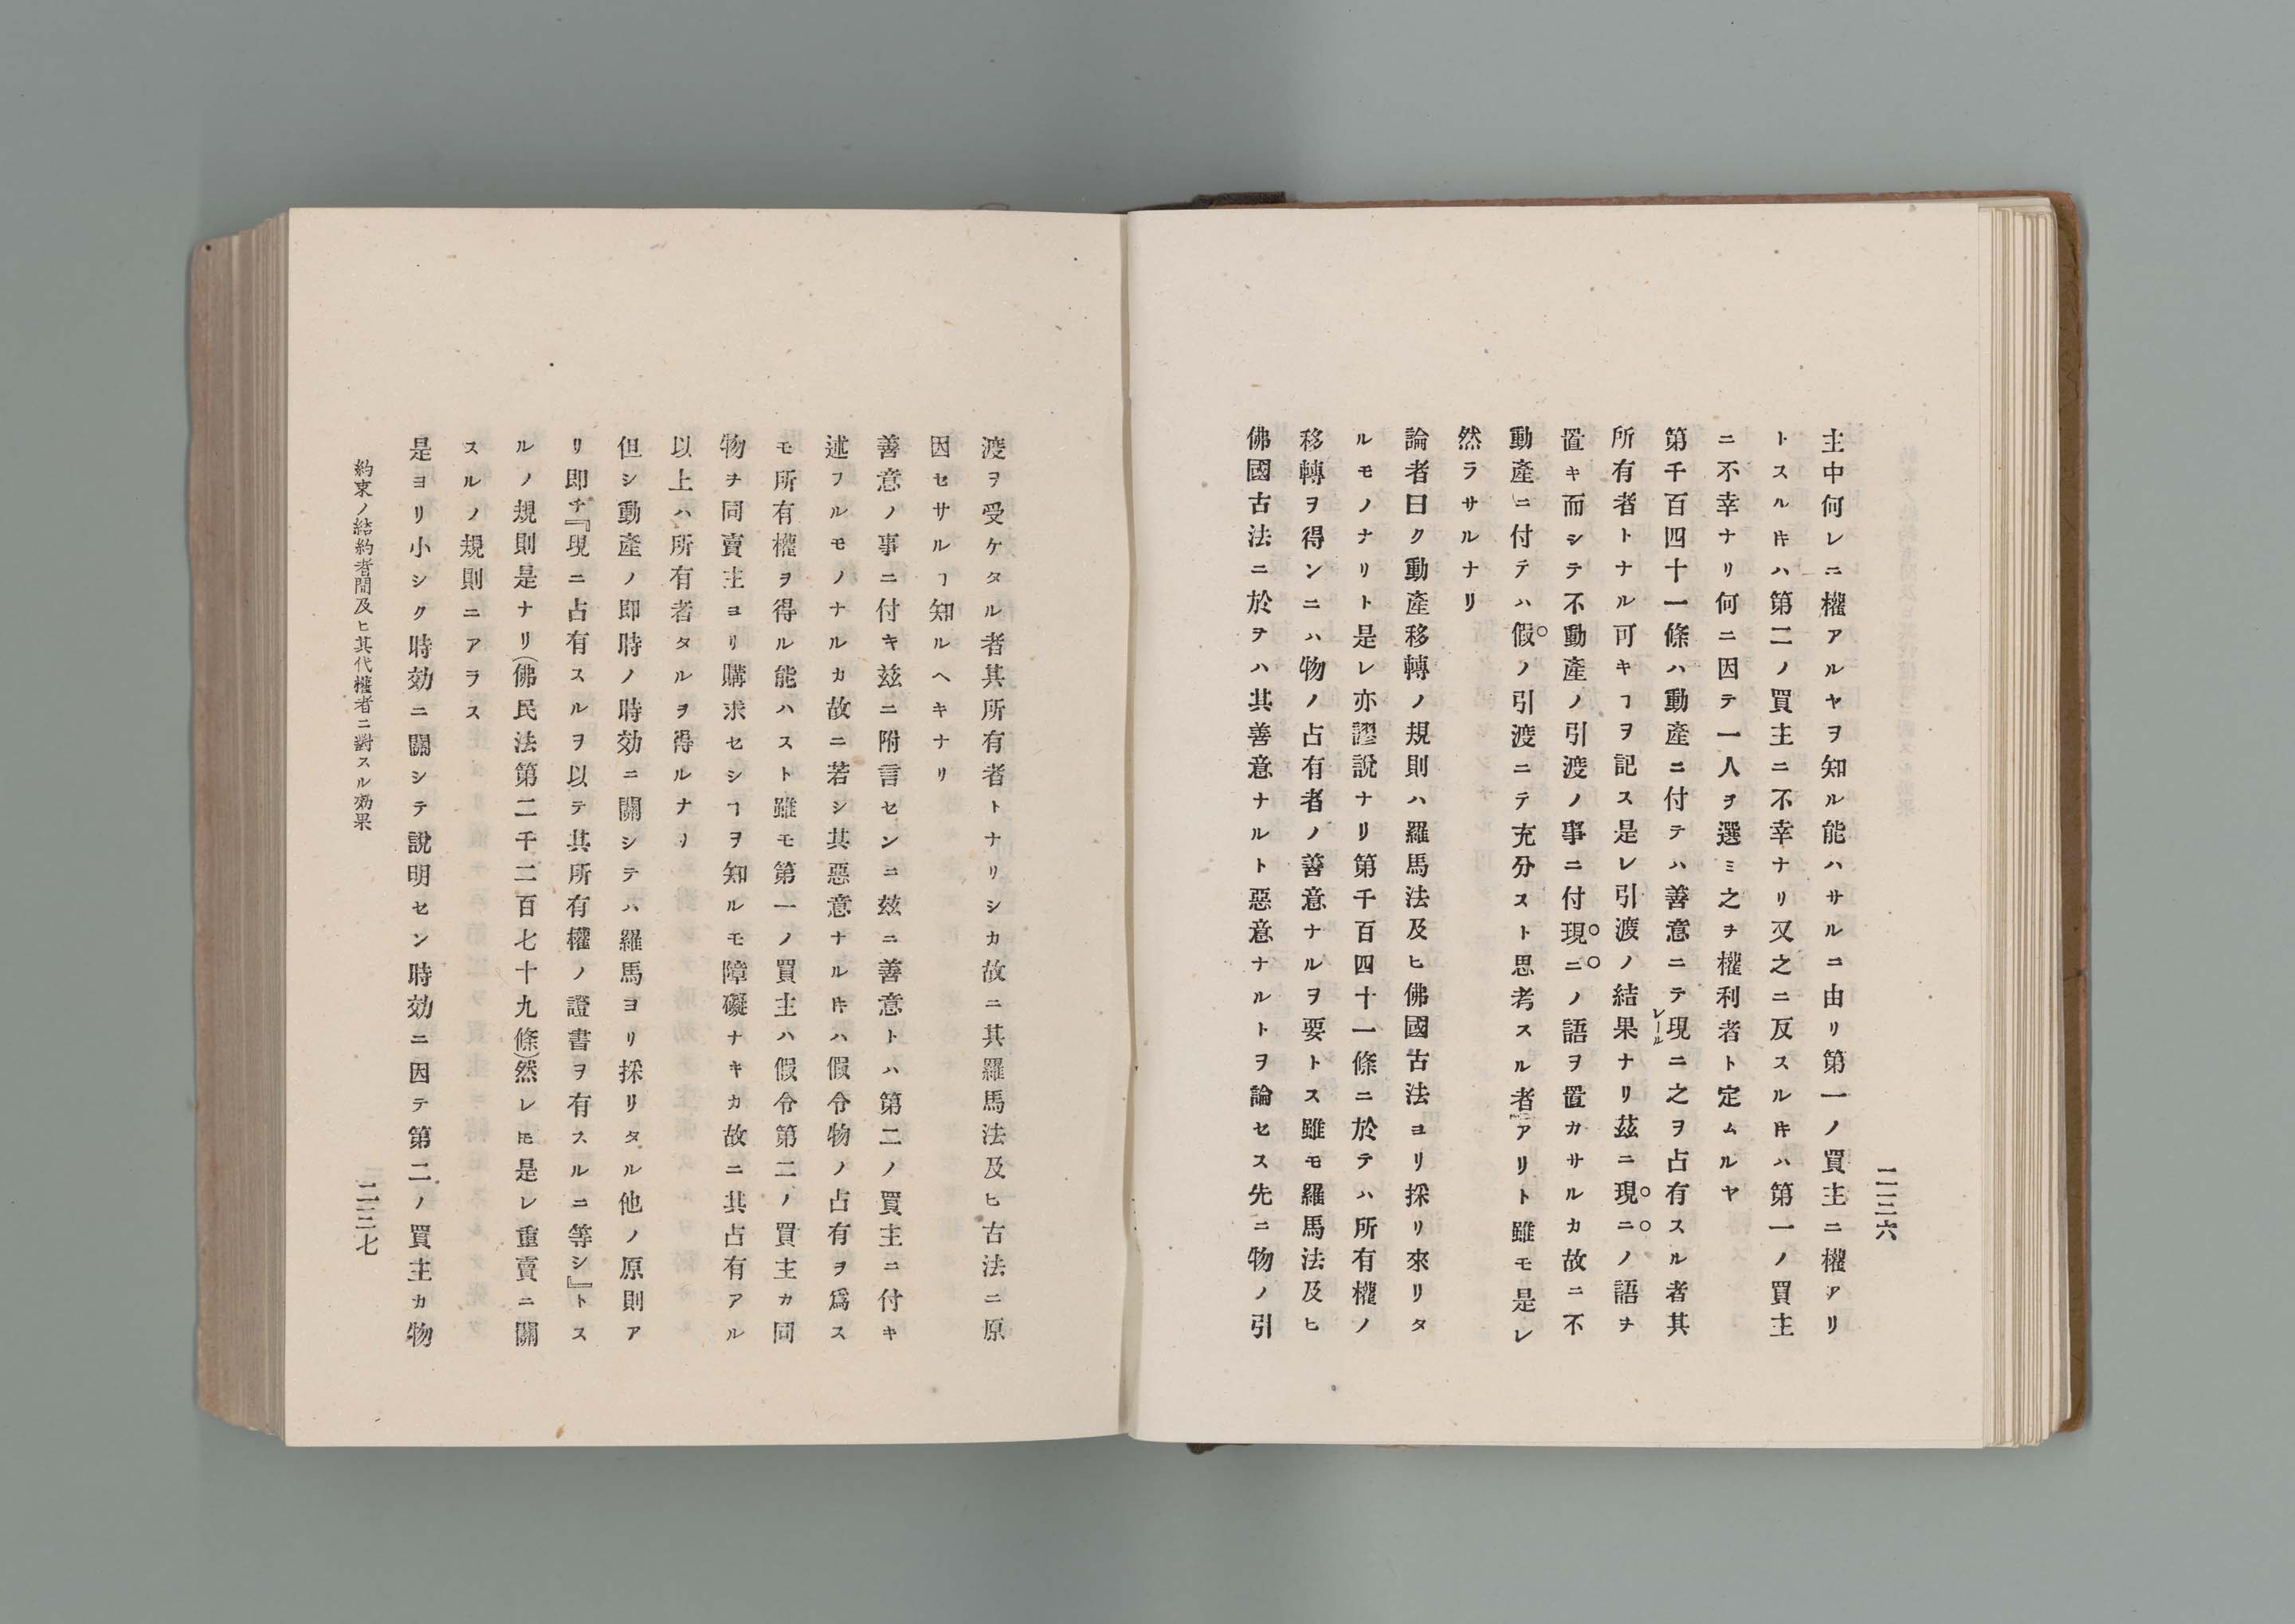 二三六
主中何レニ權アルヤヲ知ル能ハサルニ由リ第一ノ買主ニ權アリ
トスル𪜈ハ第二ノ買主ニ不幸ナリ又之ニ反スル𪜈ハ第一ノ買主
ニ不幸ナリ何ニ因テ一人ヲ選ミ之ヲ權利者ト定ムルヤ
第千百四十一條ハ動產ニ付テハ善意ニテ現ニ之ヲ占有スル者其
レール
所有者トナル可キヿヲ記ス是レ引渡ノ結果ナリ茲ニ現ニノ語ヲ
置キ而シテ不動產ノ引渡ノ事ニ付現ニノ語ヲ置カサルカ故ニ不
動產ニ付テハ假ノ引渡ニテ充分スト思考スル者アリト雖モ是レ
然ラサルナリ
論者曰ク動產移轉ノ規則ハ羅馬法及ヒ佛國古法ヨリ採リ來リタ
ルモノナリト是レ亦謬說ナリ第千百四十一條ニ於テハ所有權ノ
移轉ヲ得ンニハ物ノ占有者ノ善意ナルヲ要トス雖モ羅馬法及ヒ
佛國古法ニ於ヲハ其善意ナルト惡意ナルトヲ論セス先ニ物ノ引
渡ヲ受ケタル者其所有者トナリシカ故ニ其羅馬法及ヒ古法ニ原
因セサルヿ知ルヘキナリ
善意ノ事ニ付キ玆ニ附言センニ玆ニ善意トハ第二ノ買主ニ付キ
述フルモノナルカ故ニ若シ其惡意ナル𪜈ハ假令物ノ占有ヲ爲ス
モ所有權ヲ得ル能ハスト雖モ第一ノ買主ハ假令第二ノ買主カ同
物ヲ同賣主ヨリ購求セシヿヲ知ルモ障礙ナキカ故ニ其占有アル
以上ハ所有者タルヲ得ルナリ
但シ動產ノ即時ノ時効ニ關シテハ羅馬ヨリ採リタル他ノ原則ア
リ即チ『現ニ占有スルヲ以テ其所有權ノ證書ヲ有スルニ等シ』トス
ルノ規則是ナリ(佛民法第二千二百七十九條)然レ𪜈是レ重賣ニ關
スルノ規則ニアラス
是ヨリ小シク時効ニ關シテ說明セン時効ニ因テ第二ノ買主カ物
約束ノ結約者間及ヒ其代權者ニ對スル効果
二三七